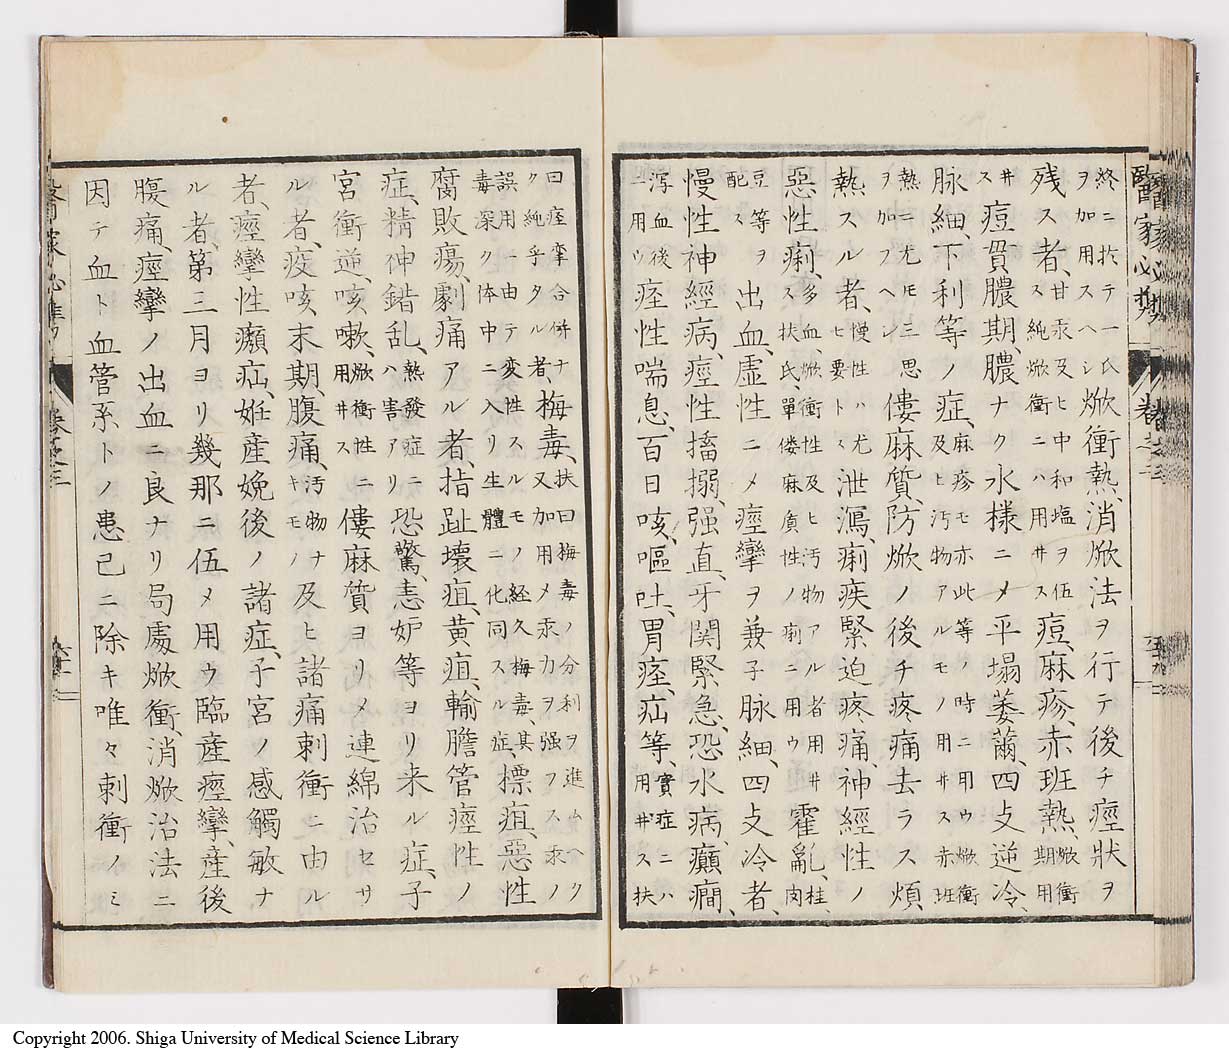 終ニ於テ一氏
ヲ加用スヘシ
焮衝熱、消焮法ヲ行テ後チ痙狀ヲ
残ス者、
甘汞及ヒ中和塩ヲ伍
ス純焮衝ニハ用井ス
痘、麻疹、赤班熱、
焮衝
期用
井
ス
痘貫膿期膿ナク水様ニメ平塌萎薾、四支逆冷、
脉細、下利等ノ症、
麻疹モ亦此等ノ時ニ用ウ焮衝
及ヒ汚物アルモノ用井ス赤班
熱ニ尤モ三思
ヲ加フヘシ
僂麻質、防焮ノ後チ疼痛去ラス煩
熱スル者、
慢性ハ尤
ヒ要トス
泄瀉、痢疾緊迫疼痛、神經性ノ
惡性痢、
多血焮衝性及ヒ汚物アル者用井
ス扶氏單僂麻質性ノ痢ニ用ウ
霍亂、
桂、
肉
豆等ヲ
配ス
出血、虛性ニメ痙攣ヲ兼子脉細、四支冷者、
慢性神經病、痙性搐搦、强直、牙関緊急、恐水病、癲癇、
瀉血後
ニ用ウ
痙性喘息、百日咳、嘔吐、胃痙、疝等、
實症ニハ
用井ス扶
曰痙攣合併ナ
ク純乎タル者、
梅毒、
扶曰梅毒ノ分利ヲ進ムヘク
又加用メ汞力ヲ强フス汞ノ
誤用ニ由テ変性スルモノ経久梅毒、其
毒深ク体中ニ入リ生體ニ化同スル症、
標疽、惡性
腐敗瘍、劇痛アル者、指趾壞疽、黄疸、輸膽管痙性ノ
症、精神錯乱、
熱發症ニ
ハ害アリ
恐驚、恚妒等ヨリ来ル症、子
宮衝逆、咳嗽、
焮衝性ニ
用井ス
僂麻質ヨリメ連綿治セサ
ル者、疫咳、末期、腹痛、
汚物ナ
キモノ
及ヒ諸痛刺衝ニ由ル
者、痙攣性癪、疝、妊産娩後ノ諸症、子宮ノ感觸敏ナ
ル者、第三月ヨリ幾那ニ伍メ用ウ臨産痙攣、產後
腹痛、痙攣ノ出血ニ良ナリ局處焮衝、消焮治法ニ
因テ血ト血管系トノ患已ニ除キ唯々刺衝ノミ
Copyright 2006. Shiga University of Medical Science Library